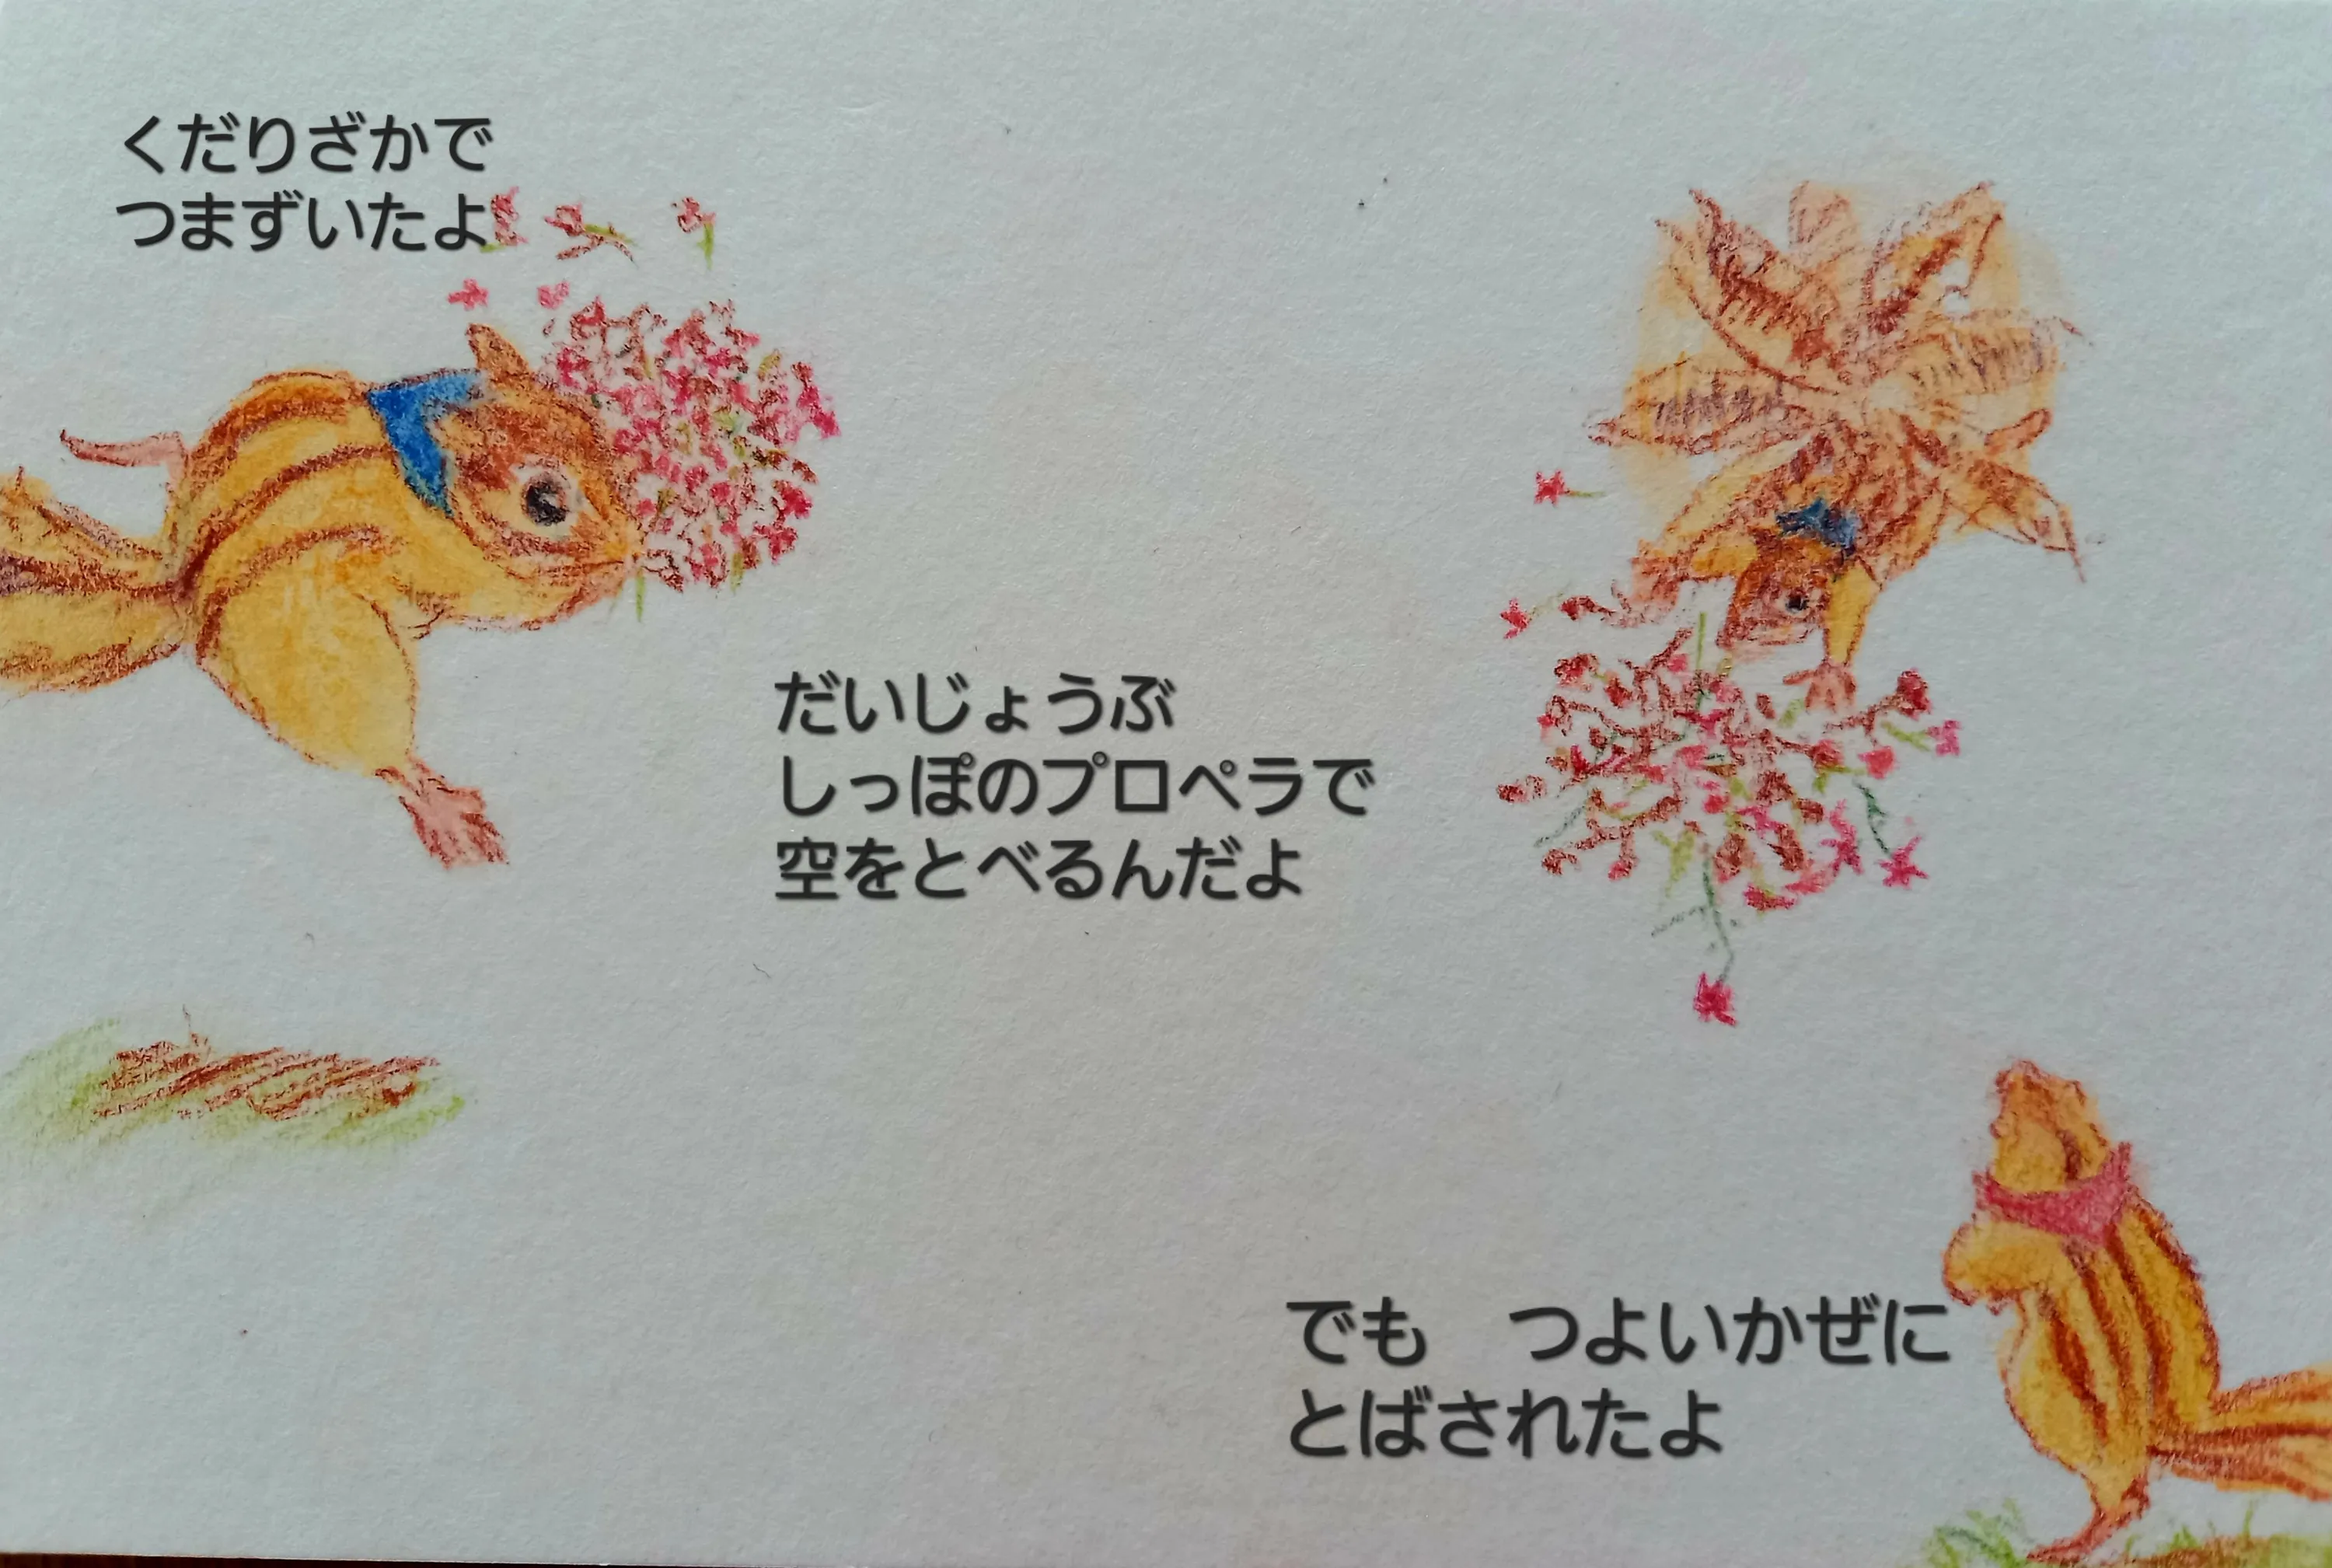 くだりざかで
つまずいたよ
だいじょうぶ
しっぽのプロペラで
空をとべるんだよ
でも　つよいかぜに
とばされたよ